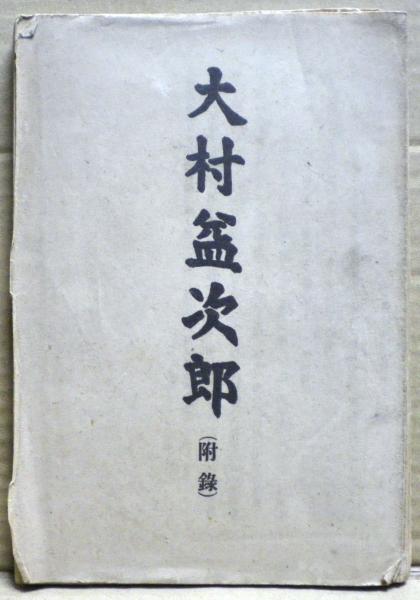 大村益次郎
(附錄)